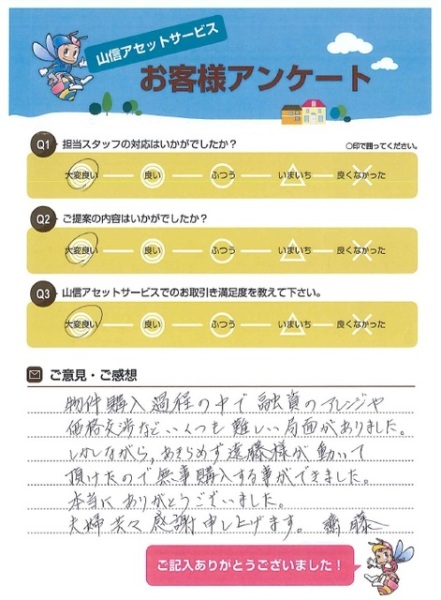 山信アセットサービス
お客様アンケート
Q1 担当スタッフの対応はいかがでしたか？ ○印で囲ってください。
大変良い 良い ふつう いまいち 良くなかった
Q2 ご提案の内容はいかがでしたか？
大変良い 良い ふつう いまいち 良くなかった
Q3 山信アセットサービスでのお取引き満足度を教えて下さい。
大変良い 良い ふつう いまいち 良くなかった
ご意見・ご感想
物件購入過程の中で融資のアレンジや
価格交渉などいくつも難しい局面がありました。
しかしながら、あきらめず遠藤様が動いて
頂けたので無事購入する事ができました。
本当にありがとうございました。
夫婦共々感謝申し上げます。 齋藤
ご記入ありがとうございました！